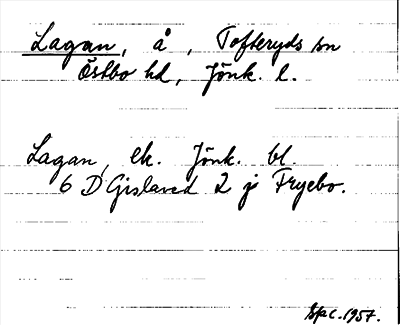 Lagan, å, Tofteryds sn
Östbo hd, Jönk. l.
Lagan, ek. Jönk. bl.
6 D Gislaved 2 ji Fryebo.
1957.